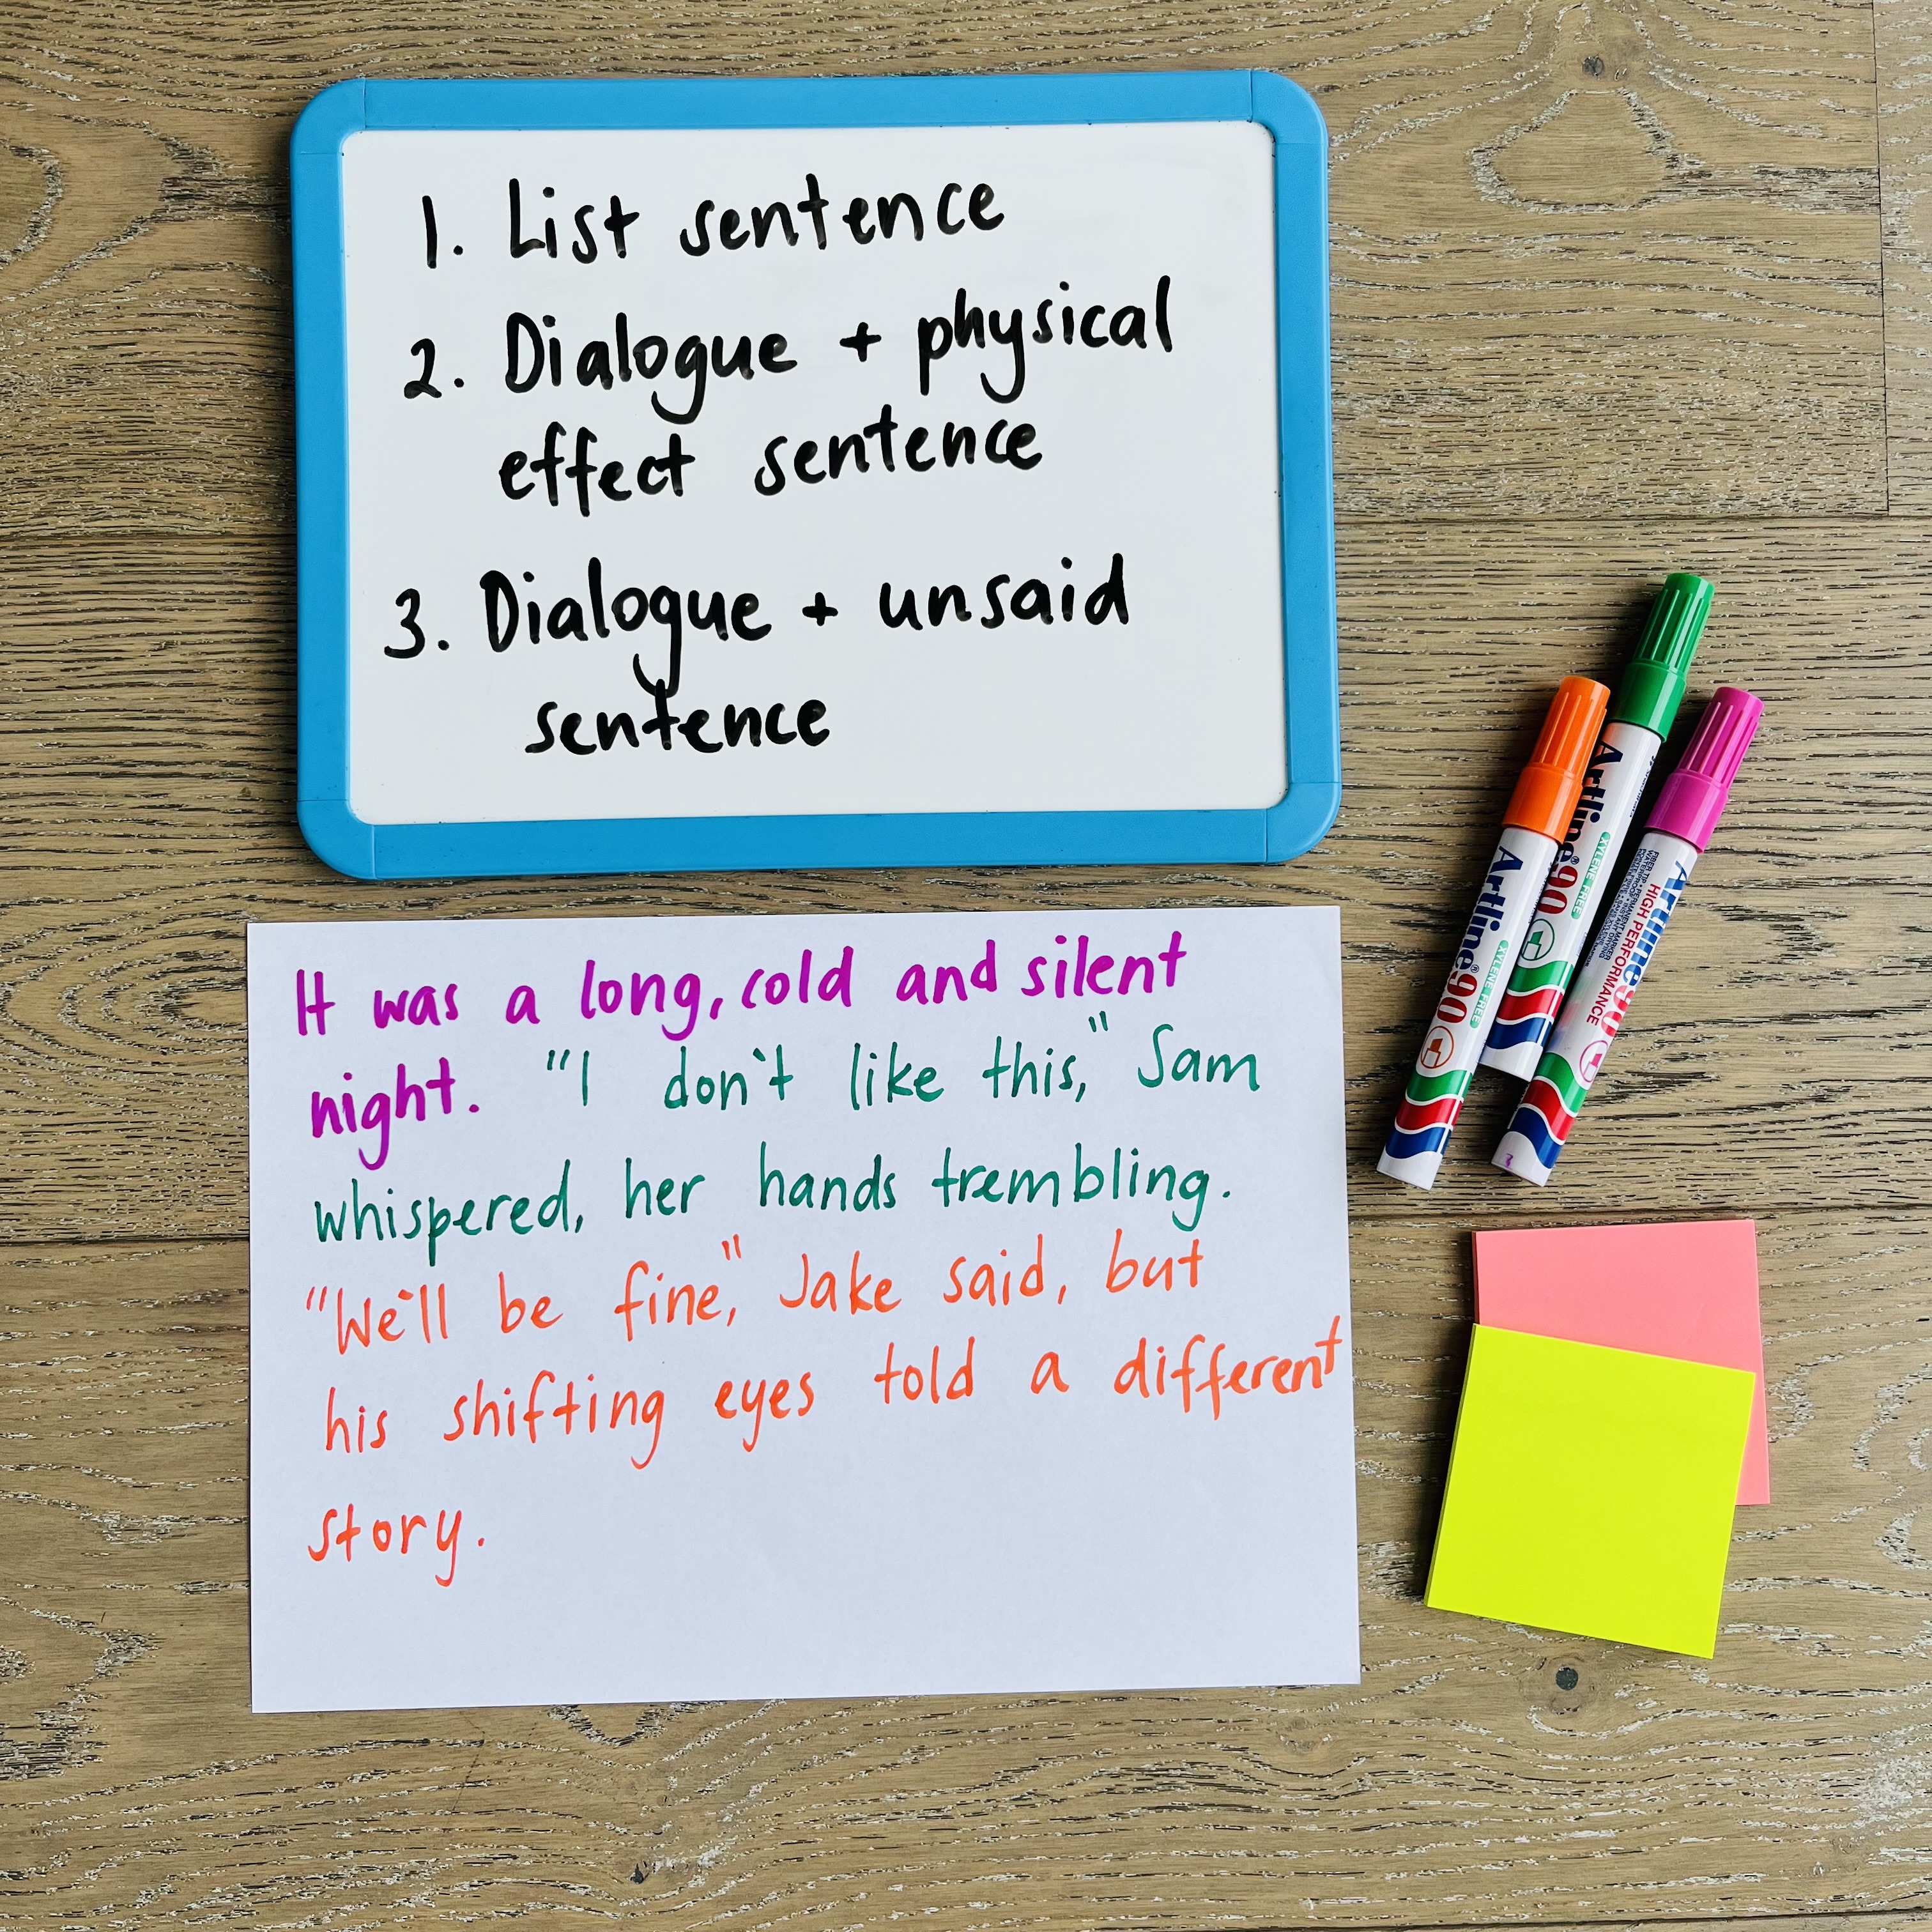 1. List sentence
2. Dialogue + physical
effect sentence
3. Dialogue + unsaid
sentence
It was a long, cold and silent
night. "I don't like this," Sam
whispered, her hands trembling.
"We'll be fine," Jake said, but
his shifting eyes told a different
story.
Artline®90
XYLENE FREE
Artline®90
XYLENE FREE
Artline 90
HIGH PERFORMANCE